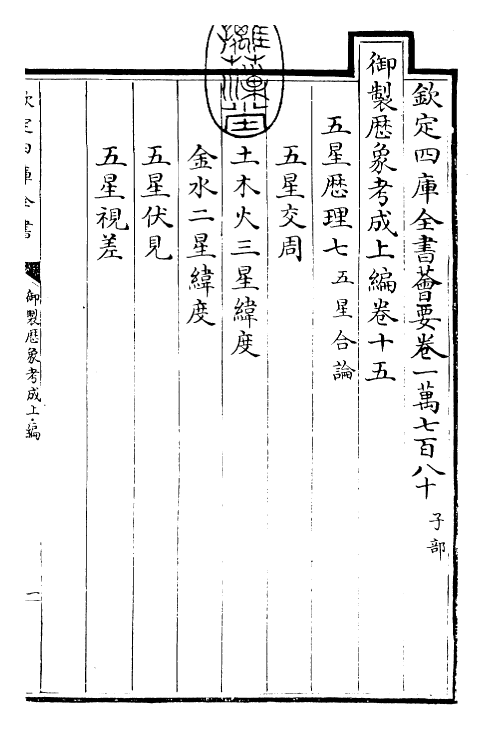 欽定四庫全書薈要卷一萬七百八十 子部
御製歷象考成上編卷十五
五星歷理七 五星合論
五星交周
土木火三星緯度
金水二星緯度
五星伏見
五星視差
欽定四庫全書
御製歷象考成上編
一
摛藻堂